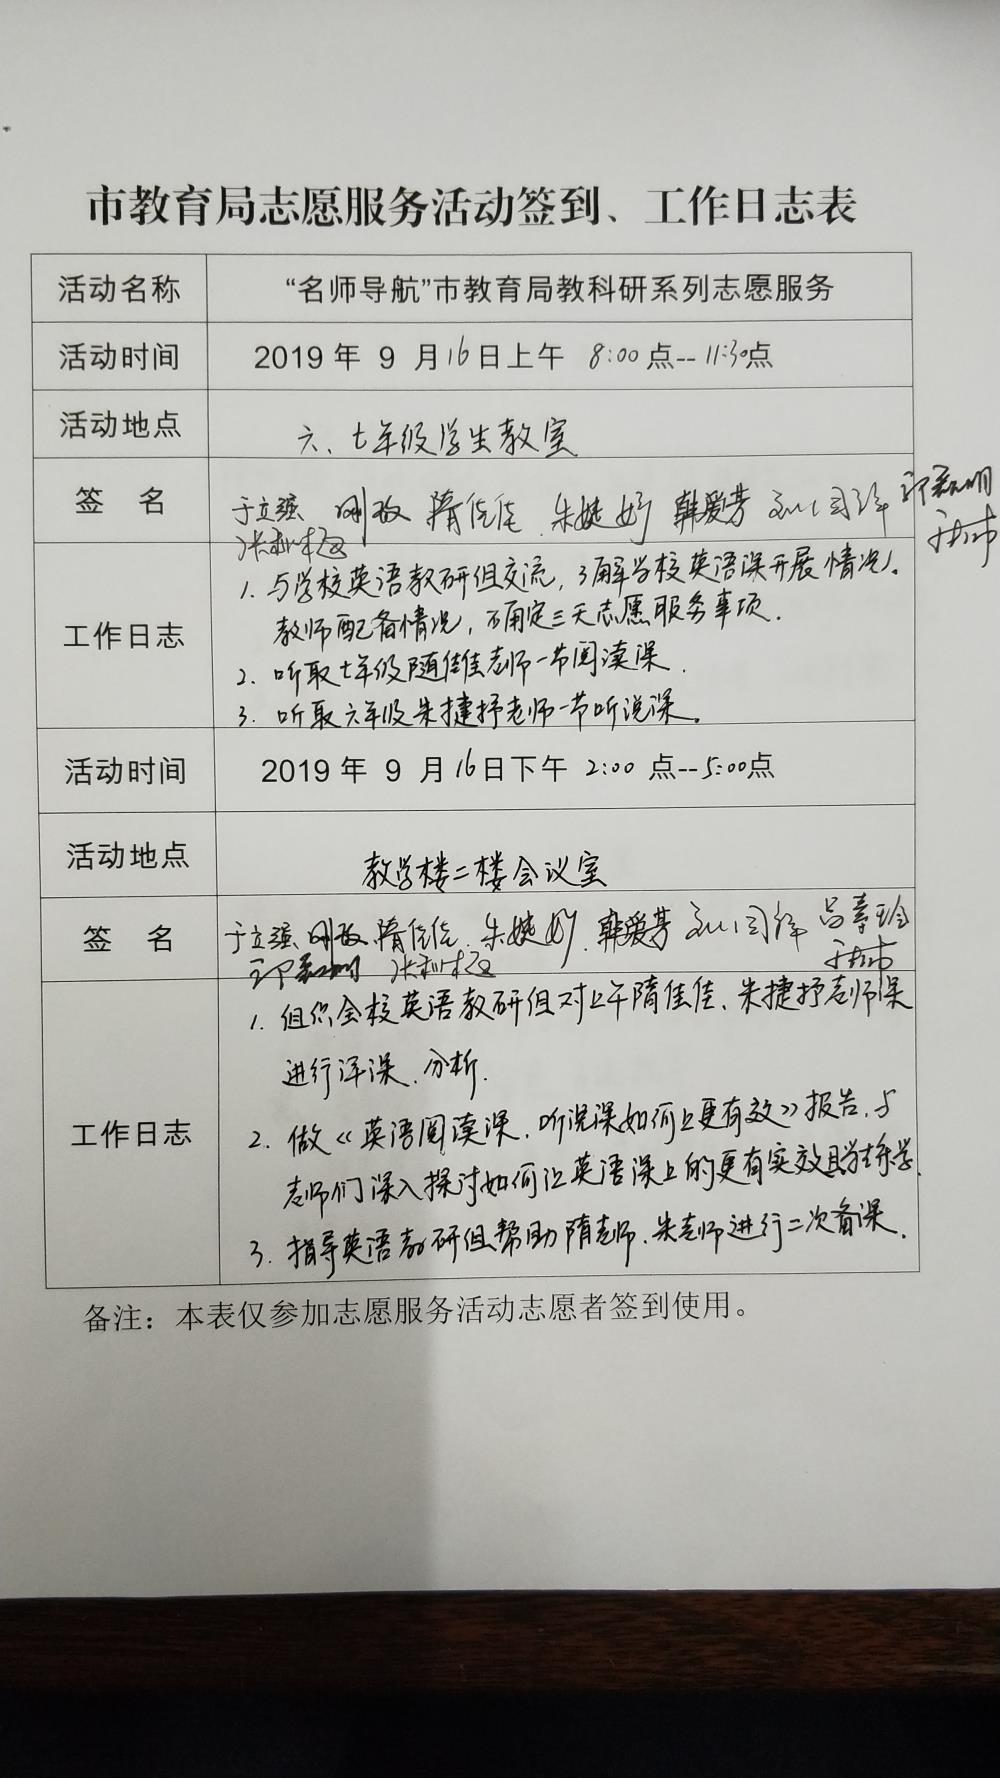 市教育局志愿服务活动签到、工作日志表
活动名称 “名师导航”市教育局教科研系列志愿服务
活动时间 2019年 9 月16日上午 8:00点--11:30点
活动地点 六、七年级学生教室
签 名 于立强 隋佳佳 朱婕妤 韩爱芳
工作日志
1. 与学校英语教研组交流,了解学校英语课开展情况、
教师配备情况,确定三天志愿服务事项.
2. 听取七年级随佳佳老师一节阅读课.
3. 听取六年级朱捷抒老师一节听说课。
活动时间 2019年 9 月16日下午 2:00 点--5:00点
活动地点 教学楼二楼会议室
签 名 于立强 隋佳佳 朱婕妤 韩爱芳
工作日志
1. 组织全校英语教研组对上午隋佳佳、朱捷抒老师课
进行评课、分析.
2. 做《英语阅读课、听说课如何上更有效》报告,与
老师们深入探讨如何让英语课上的更有实效
3. 指导英语教研组帮助隋老师、朱老师进行二次备课.
备注：本表仅参加志愿服务活动志愿者签到使用。